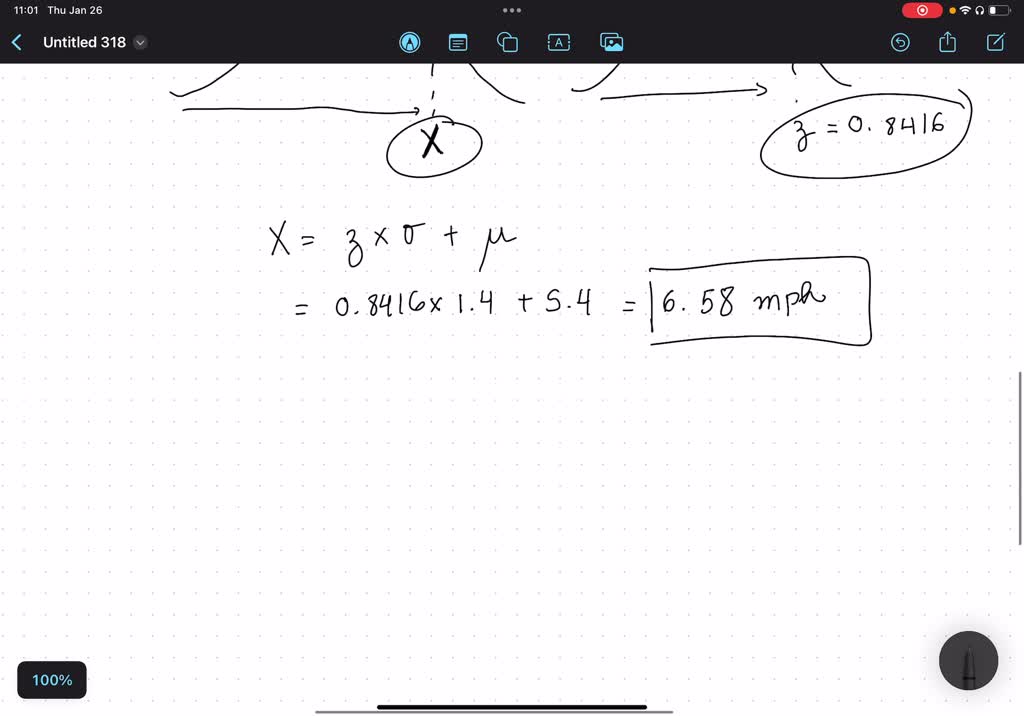 11:01 Thu Jan 26
Untitled 318
A
X
z = 0.8416
X = z × σ + μ
= 0.8416 × 1.4 + 5.4 = 6.58 mph
100%